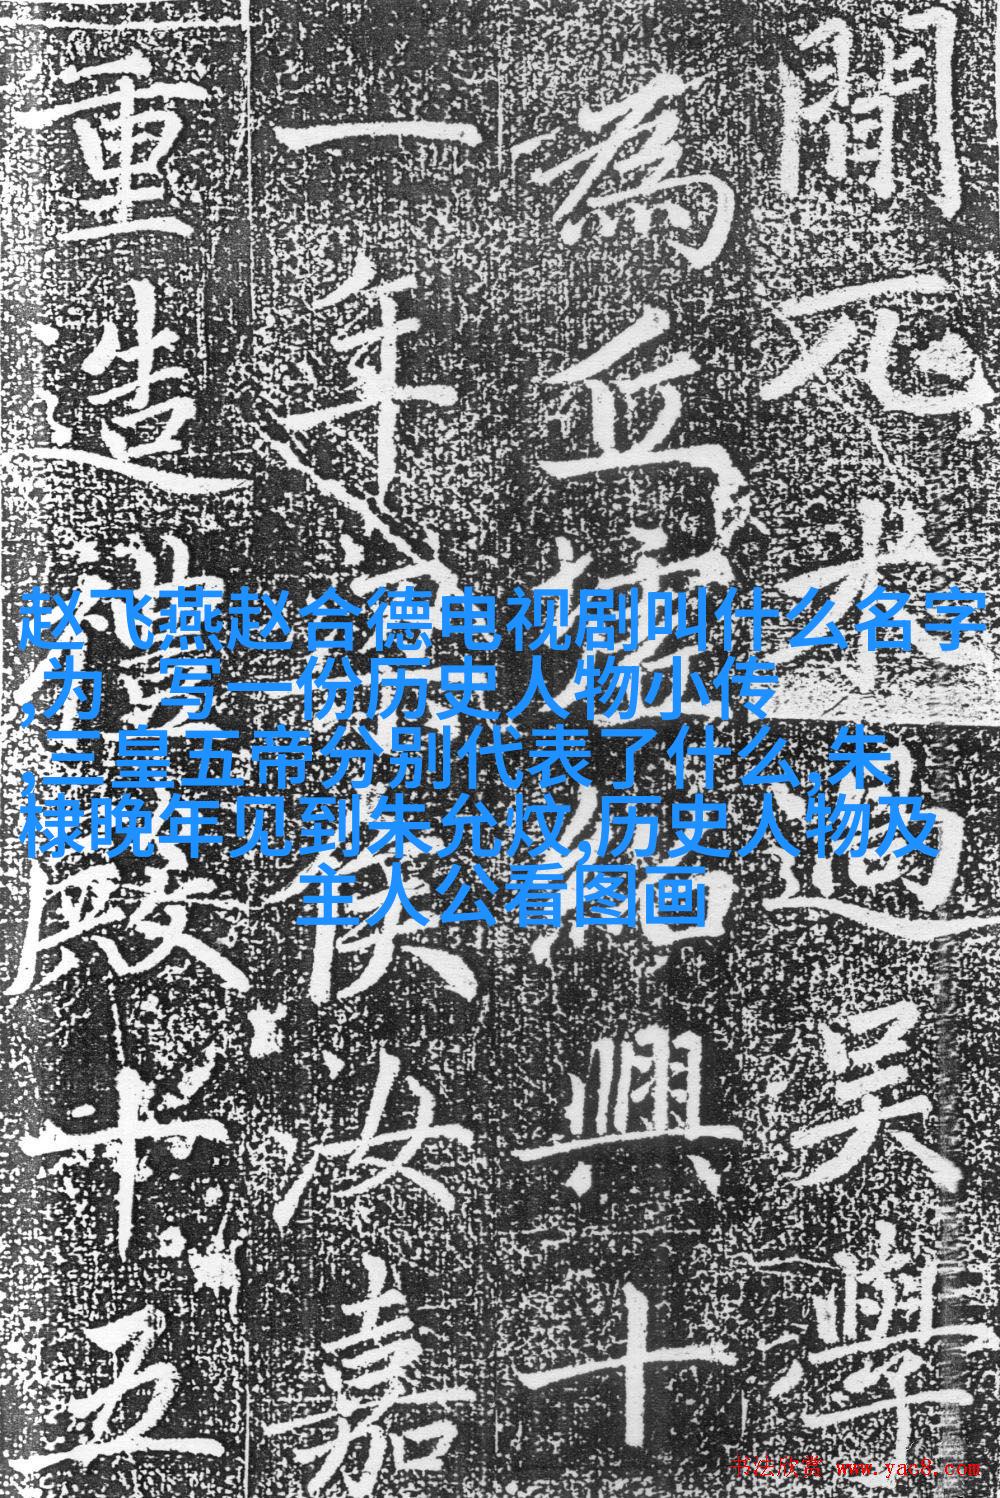 間元末過吳學
為丘墟紹興十
一年
侯汝嘉
重造禮殿十五
赵飞燕赵合德电视剧叫什么名字
,为__写一份历史人物小传
,三皇五帝分别代表了什么,朱
棣晚年见到朱允炆,历史人物及
主人公看图画
书法欣赏 www.yac8.com